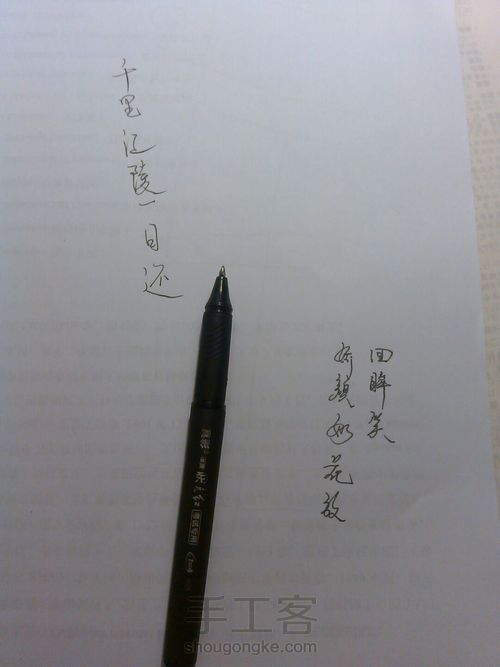 千里江陵一日还
回眸笑
娇颜如花放
考试专用
手工客
shougongke.com